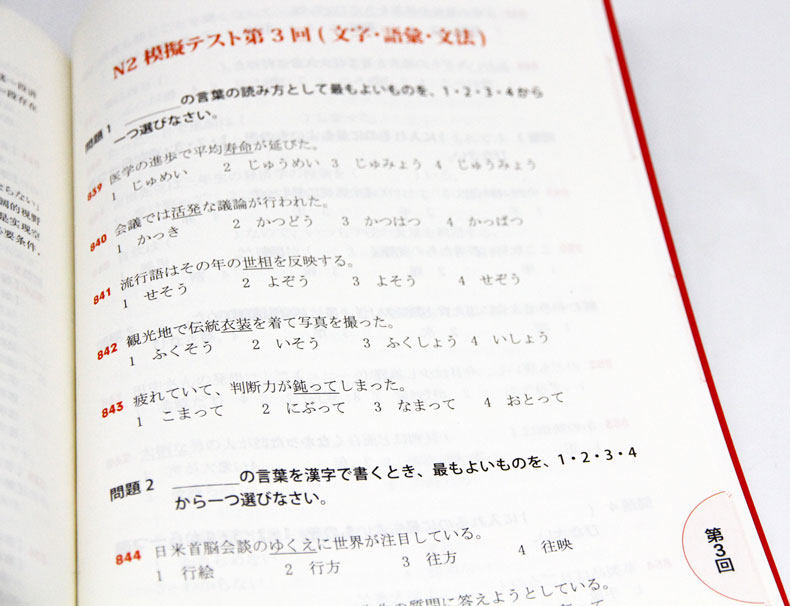 N2 模擬テスト第3回(文字・語彙・文法)
問題1 ______の言葉の読み方として最もよいものを、1・2・3・4から
一つ選びなさい。
839 医学の進歩で平均寿命が延びた。
1 じゅめい 2 じゅうめい 3 じゅみょう 4 じゅうみょう
840 会議では活発な議論が行われた。
1 かっき 2 かつどう 3 かつはつ 4 かっぱつ
841 流行語はその年の世相を反映する。
1 せそう 2 よぞう 3 よそう 4 せぞう
842 観光地で伝統衣装を着て写真を撮った。
1 ふくそう 2 いそう 3 ふくしょう 4 いしょう
843 疲れていて、判断力が鈍ってしまった。
1 こまって 2 にぶって 3 なまって 4 おとって
問題2 ______の言葉を漢字で書くとき、最もよいものを、1・2・3・4
から一つ選びなさい。
844 日米首脳会談のゆくえに世界が注目している。
1 行絵 2 行方 3 往方 4 往映
の質問に答えようとしている。
第3回